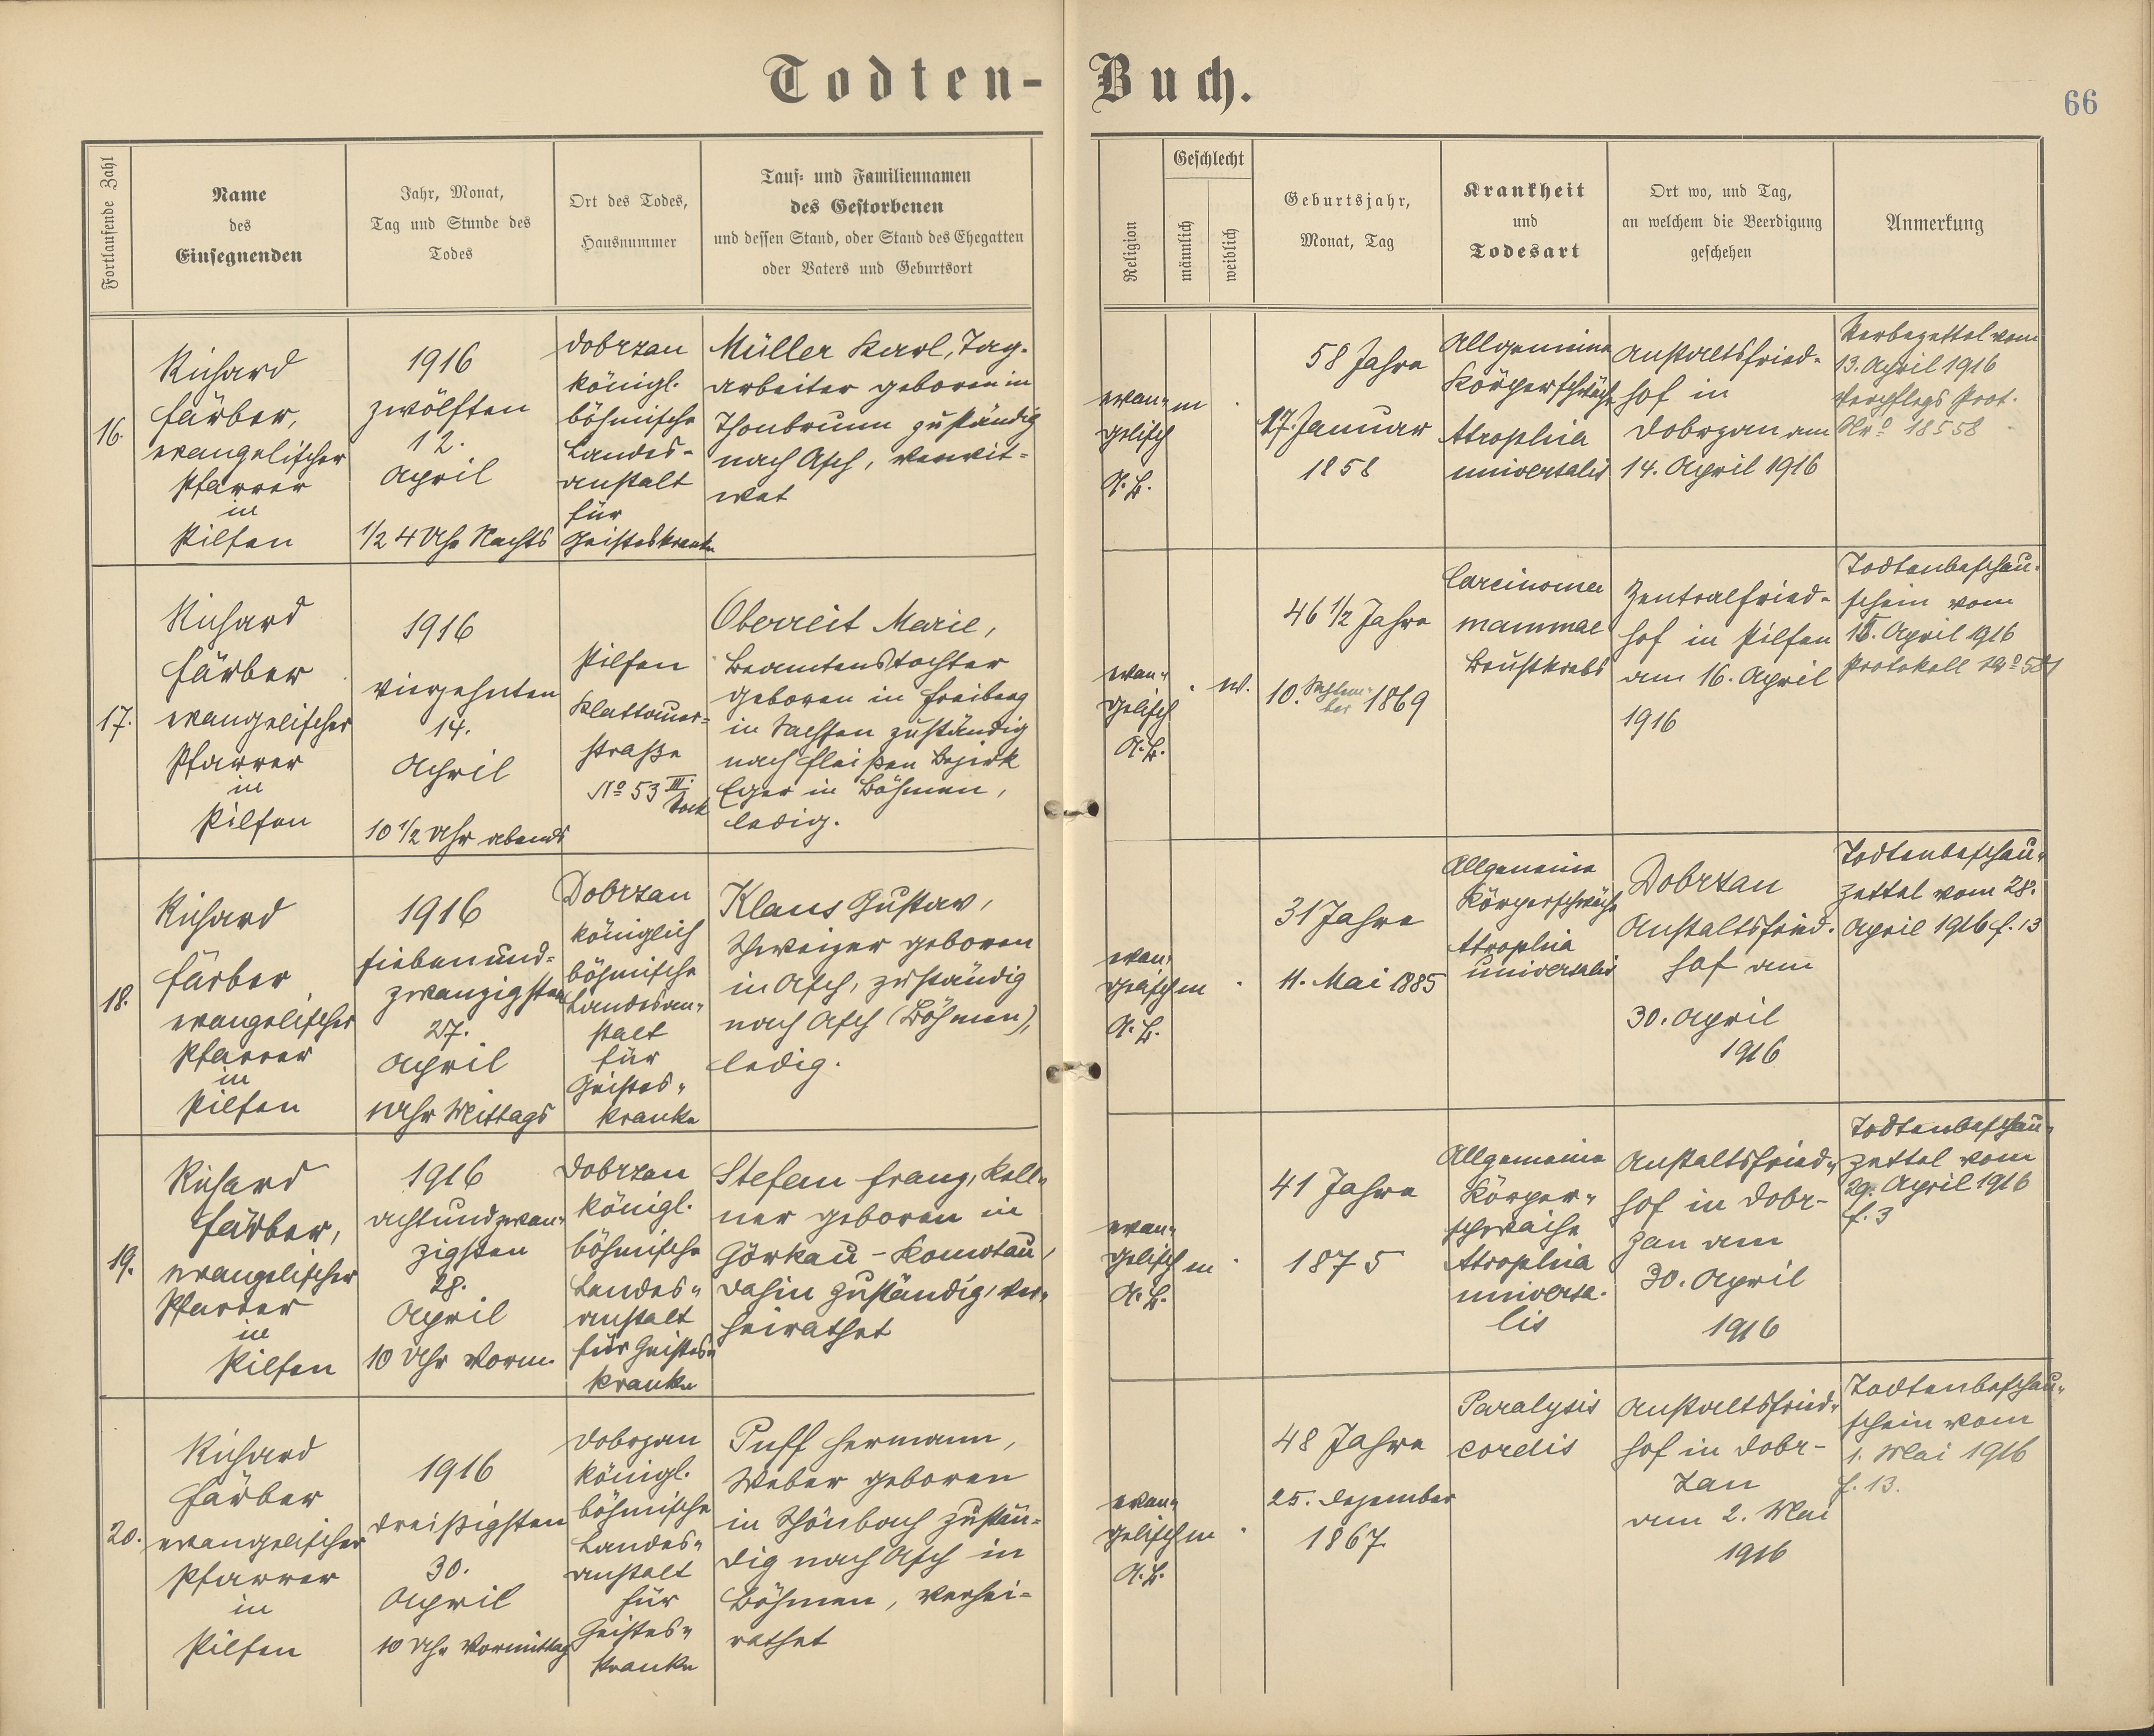 Todten-Buch.
66
Fortlaufende Zahl
Name
des
Einsegnenden
Jahr, Monat,
Tag und Stunde des
Todes
Ort des Todes,
Hausnummer
Tauf- und Familiennamen
des Gestorbenen
und dessen Stand, oder Stand des Ehegatten
oder Vaters und Geburtsort
Religion
Geschlecht
männlich
weiblich
Geburtsjahr,
Monat, Tag
Krankheit
und
Todesart
Ort wo, und Tag,
an welchem die Beerdigung
geschehen
Anmerkung
16.
Richard
Färber,
evangelischer
Pfarrer
in
Pilsen
1916
zwölften
12.
April
1/2 4 Uhr Nachts
Dobrzan
königl.
böhmische
Landes-
anstalt
für
Geisteskranke
Müller Karl, Tag-
arbeiter geboren in
Thonbrunn zuständig
nach Asch, verwit-
wet
evan-
gelisch
A. B.
m
58 Jahre
17. Januar
1858
Allgemeine
Körperschwäche
Atrophia
universalis
Anstaltsfried-
hof in
Dobrzan am
14. April 1916
Sterbezettel vom
13. April 1916
Verpflegs Prot.
Nro 18558
17.
Richard
Färber
evangelischer
Pfarrer
in
Pilsen
1916
vierzehnten
14.
April
10 1/2 Uhr abends
Pilsen
Klattauer-
straße
No 53 III.
Stock
Oberreit Marie,
Beamtenstochter
geboren in Freiberg
in Sachsen zuständig
nach Fleißen Bezirk
Eger in Böhmen,
ledig.
evan-
gelisch
A. B.
w.
46 1/2 Jahre
10. Septem-
ber 1869
Carcinoma
mammae
Brustkrebs
Zentralfried-
hof in Pilsen
am 16. April
1916
Todtenbeschau-
schein vom
15. April 1916
Protokoll No
18.
Richard
Färber,
evangelischer
Pfarrer
in
Pilsen
1916
siebenund-
zwanzigsten
27.
April
Uhr Mittags
Dobrzan
königlich
böhmische
Landesan-
stalt
für
Geistes-
kranke
Klaus Gustav,
Schweizer geboren
in Asch, zuständig
nach Asch (Böhmen),
ledig.
evan-
gelisch
A. B.
m
31 Jahre
11. Mai 1885
Allgemeine
Körperschwäche
Atrophia
universalis
Dobrzan
Anstaltsfried-
hof am
30. April
1916
Todtenbeschau-
zettel vom 28.
April 1916 f. 13
19.
Richard
Färber,
evangelischer
Pfarrer
in
Pilsen
1916
achtundzwan-
zigsten
28.
April
10 Uhr Vorm.
Dobrzan
königl.
böhmische
Landes-
anstalt
für Geistes-
kranke
Stefan Franz, Kell-
ner geboren in
Görkau-Komotau,
dahin zuständig, ver-
heirathet
evan-
gelisch
A. B.
m
41 Jahre
1875
Allgemeine
Körper-
schwäche
Atrophia
universa-
lis
Anstaltsfried-
hof in Dobr-
zan am
30. April
1916
Todtenbeschau-
zettel vom
29. April 1916
f. 3
20.
Richard
Färber
evangelischer
Pfarrer
in
Pilsen
1916
dreißigsten
30.
April
10 Uhr Vormittag
Dobrzan
königl.
böhmische
Landes-
anstalt
für
Geistes-
kranke
Puff Hermann,
Weber geboren
in Schönbach zustän-
dig nach Asch in
Böhmen, verhei-
rathet
evan-
gelisch
A. B.
m
48 Jahre
25. Dezember
1867
Paralysis
cordis
Anstaltsfried-
hof in Dobr-
zan
am 2. Mai
1916
Todtenbeschau-
schein vom
1. Mai 1916
f. 13.